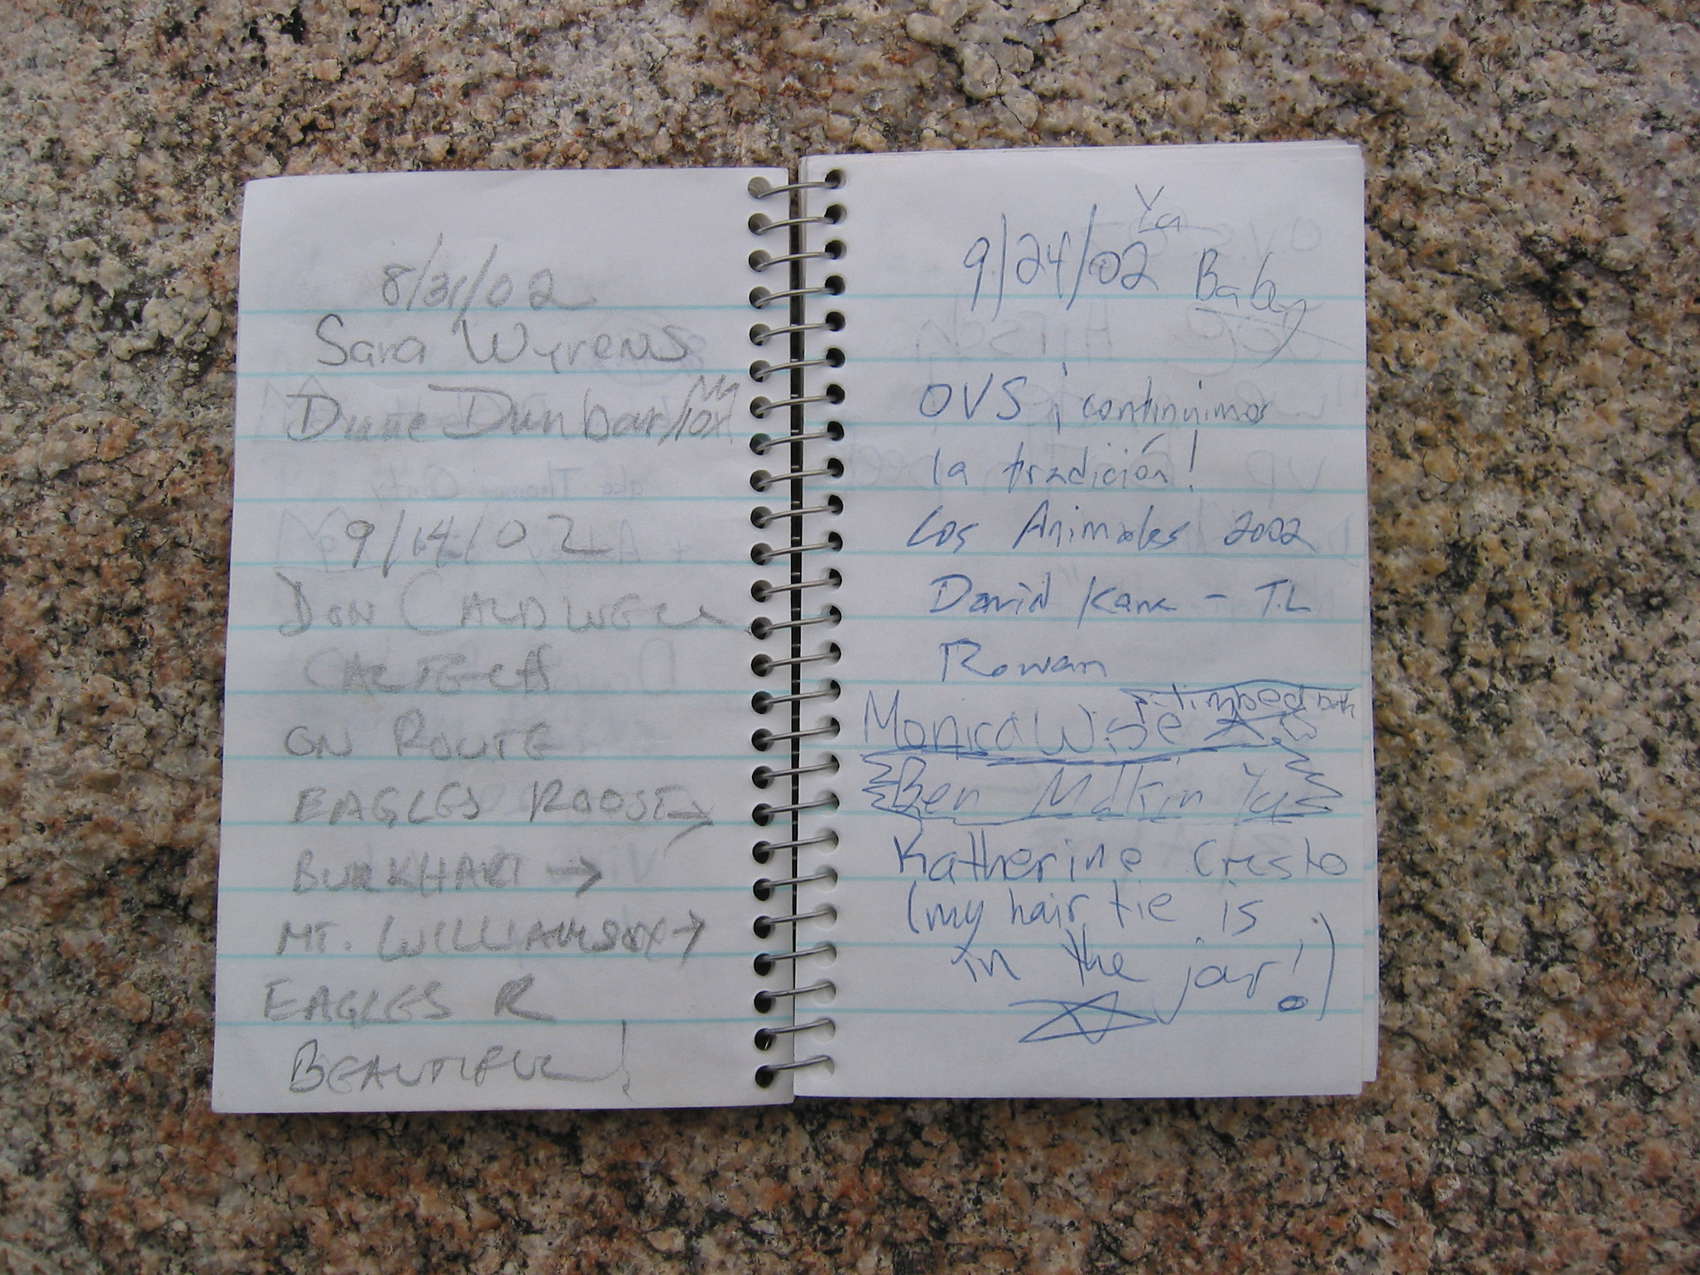 8/31/02
Sara Wyrens
Diane Dunbar/Fox
9/14/02
DON CALDWELL
CALTECH
ON ROUTE
EAGLES ROOST →
BURKHART →
MT. WILLIAMSON →
EAGLES R
BEAUTIFUL!
9/24/02 Ya Baby
OVS ¡continuimos
la tradición!
Los Animales 2002
David Kane - T.L
Rowan
Monica Wise
Ben Malkin
Katherine Cresto
(my hair tie is
in the jar!)